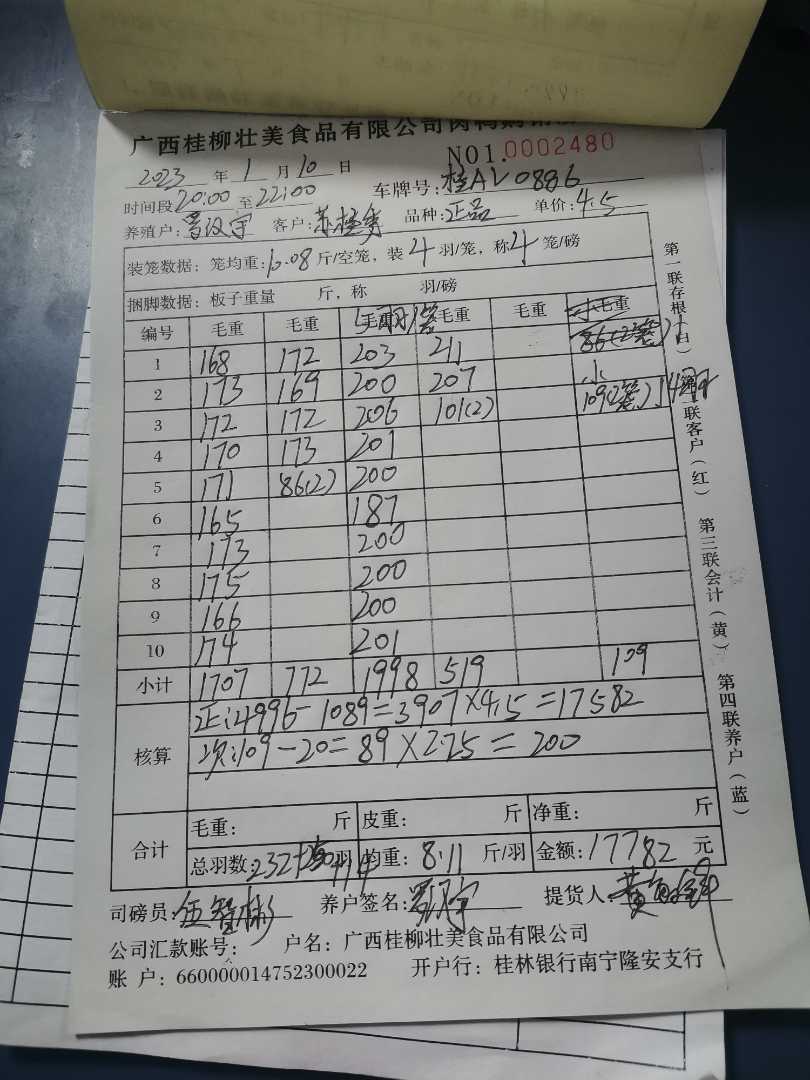 广西桂柳壮美食品有限公司肉鸭购销
NO1.0002480
2023 年 1 月 10 日
时间段 20:00 至 22:00 车牌号: 桂AV0886
养殖户: 客户: 品种: 正品 单价: 4.5
装笼数据: 笼均重: 10.08 斤/空笼, 装 4 羽/笼, 称 4 笼/磅
捆脚数据: 板子重量 斤, 称 羽/磅
5羽/笼
编号 毛重 毛重 毛重 毛重 毛重 毛重
1 168 172 203 211
2 173 169 200 207 小
3 172 172 206 101(2) 109(2笼)
4 170 173 201
5 171 86(2) 200
6 165 187
7 173 200
8 175 200
9 166 200
10 174 201
小计 1707 772 1998 519 109
核算
正:4996-1089=3907×4.5=17582
次:109-20=89×2.25=200
合计
毛重: 斤 皮重: 斤 净重: 斤
总羽数: 232+250+14 羽 均重: 8.11 斤/羽 金额: 17782 元
司磅员: 伍智彬 养户签名: 提货人:
公司汇款账号: 户名: 广西桂柳壮美食品有限公司
账 户: 660000014752300022 开户行: 桂林银行南宁隆安支行
第一联存根(白) 第二联客户(红) 第三联会计(黄) 第四联养户(蓝)